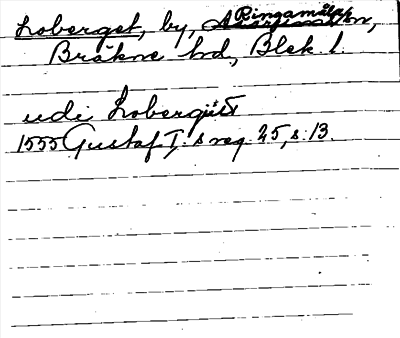 Loberget, by, Ringamåla sn,
Bräkne hd, Blek l.
udi Lobergitt
1555 Gustaf I:s reg. 25, s. 13.